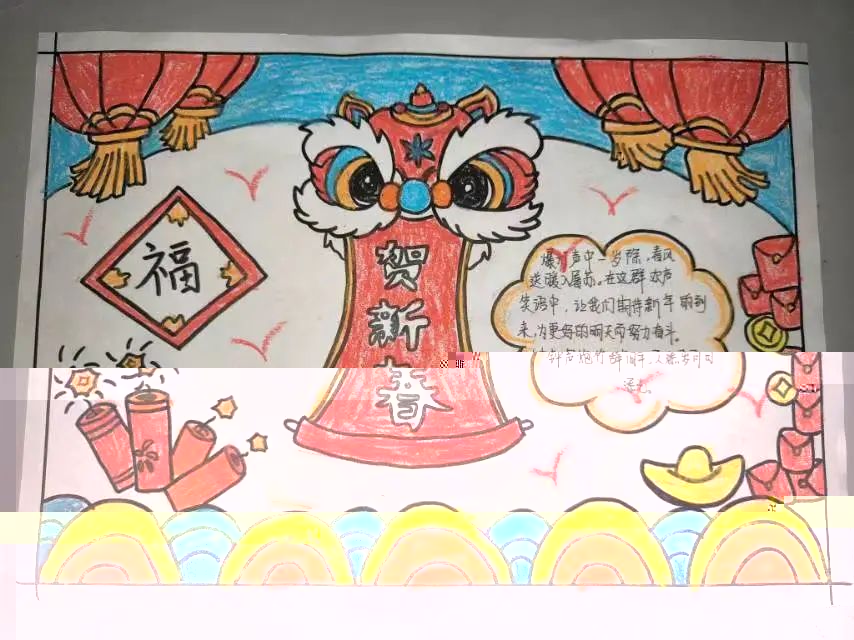 福
贺
新
春
爆竹声中一岁除，春风
送暖入屠苏。在这群欢声
笑语中，让我们期待新年的到
来，为更好的明天而努力奋斗。
钟声炮竹辞旧年，